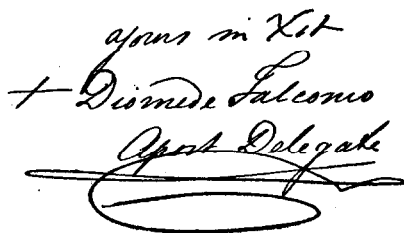 yours in Xst
+ Diomede Falconio
Apost Delegate